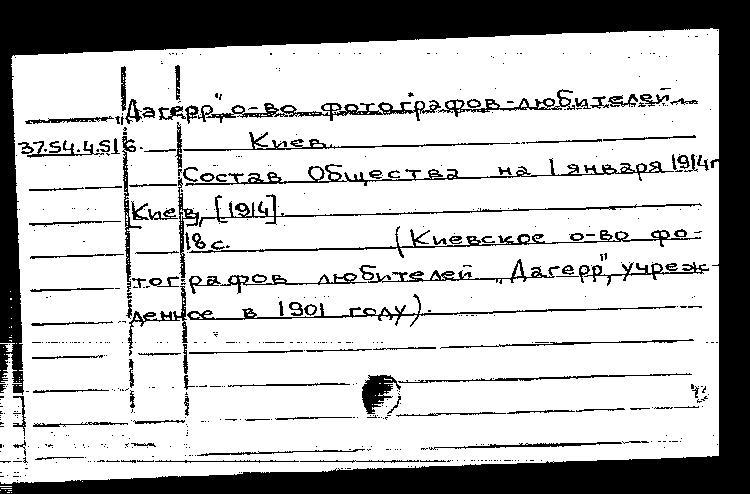 „Дагерр", о-во фотографов-любителей.
37.54.4.516. Киев.
Состав Общества на 1 января 1914г
[Киев], [1914].
18 с. (Киевское о-во фо-
тографов любителей „Дагерр", учреж-
денное в 1901 году).